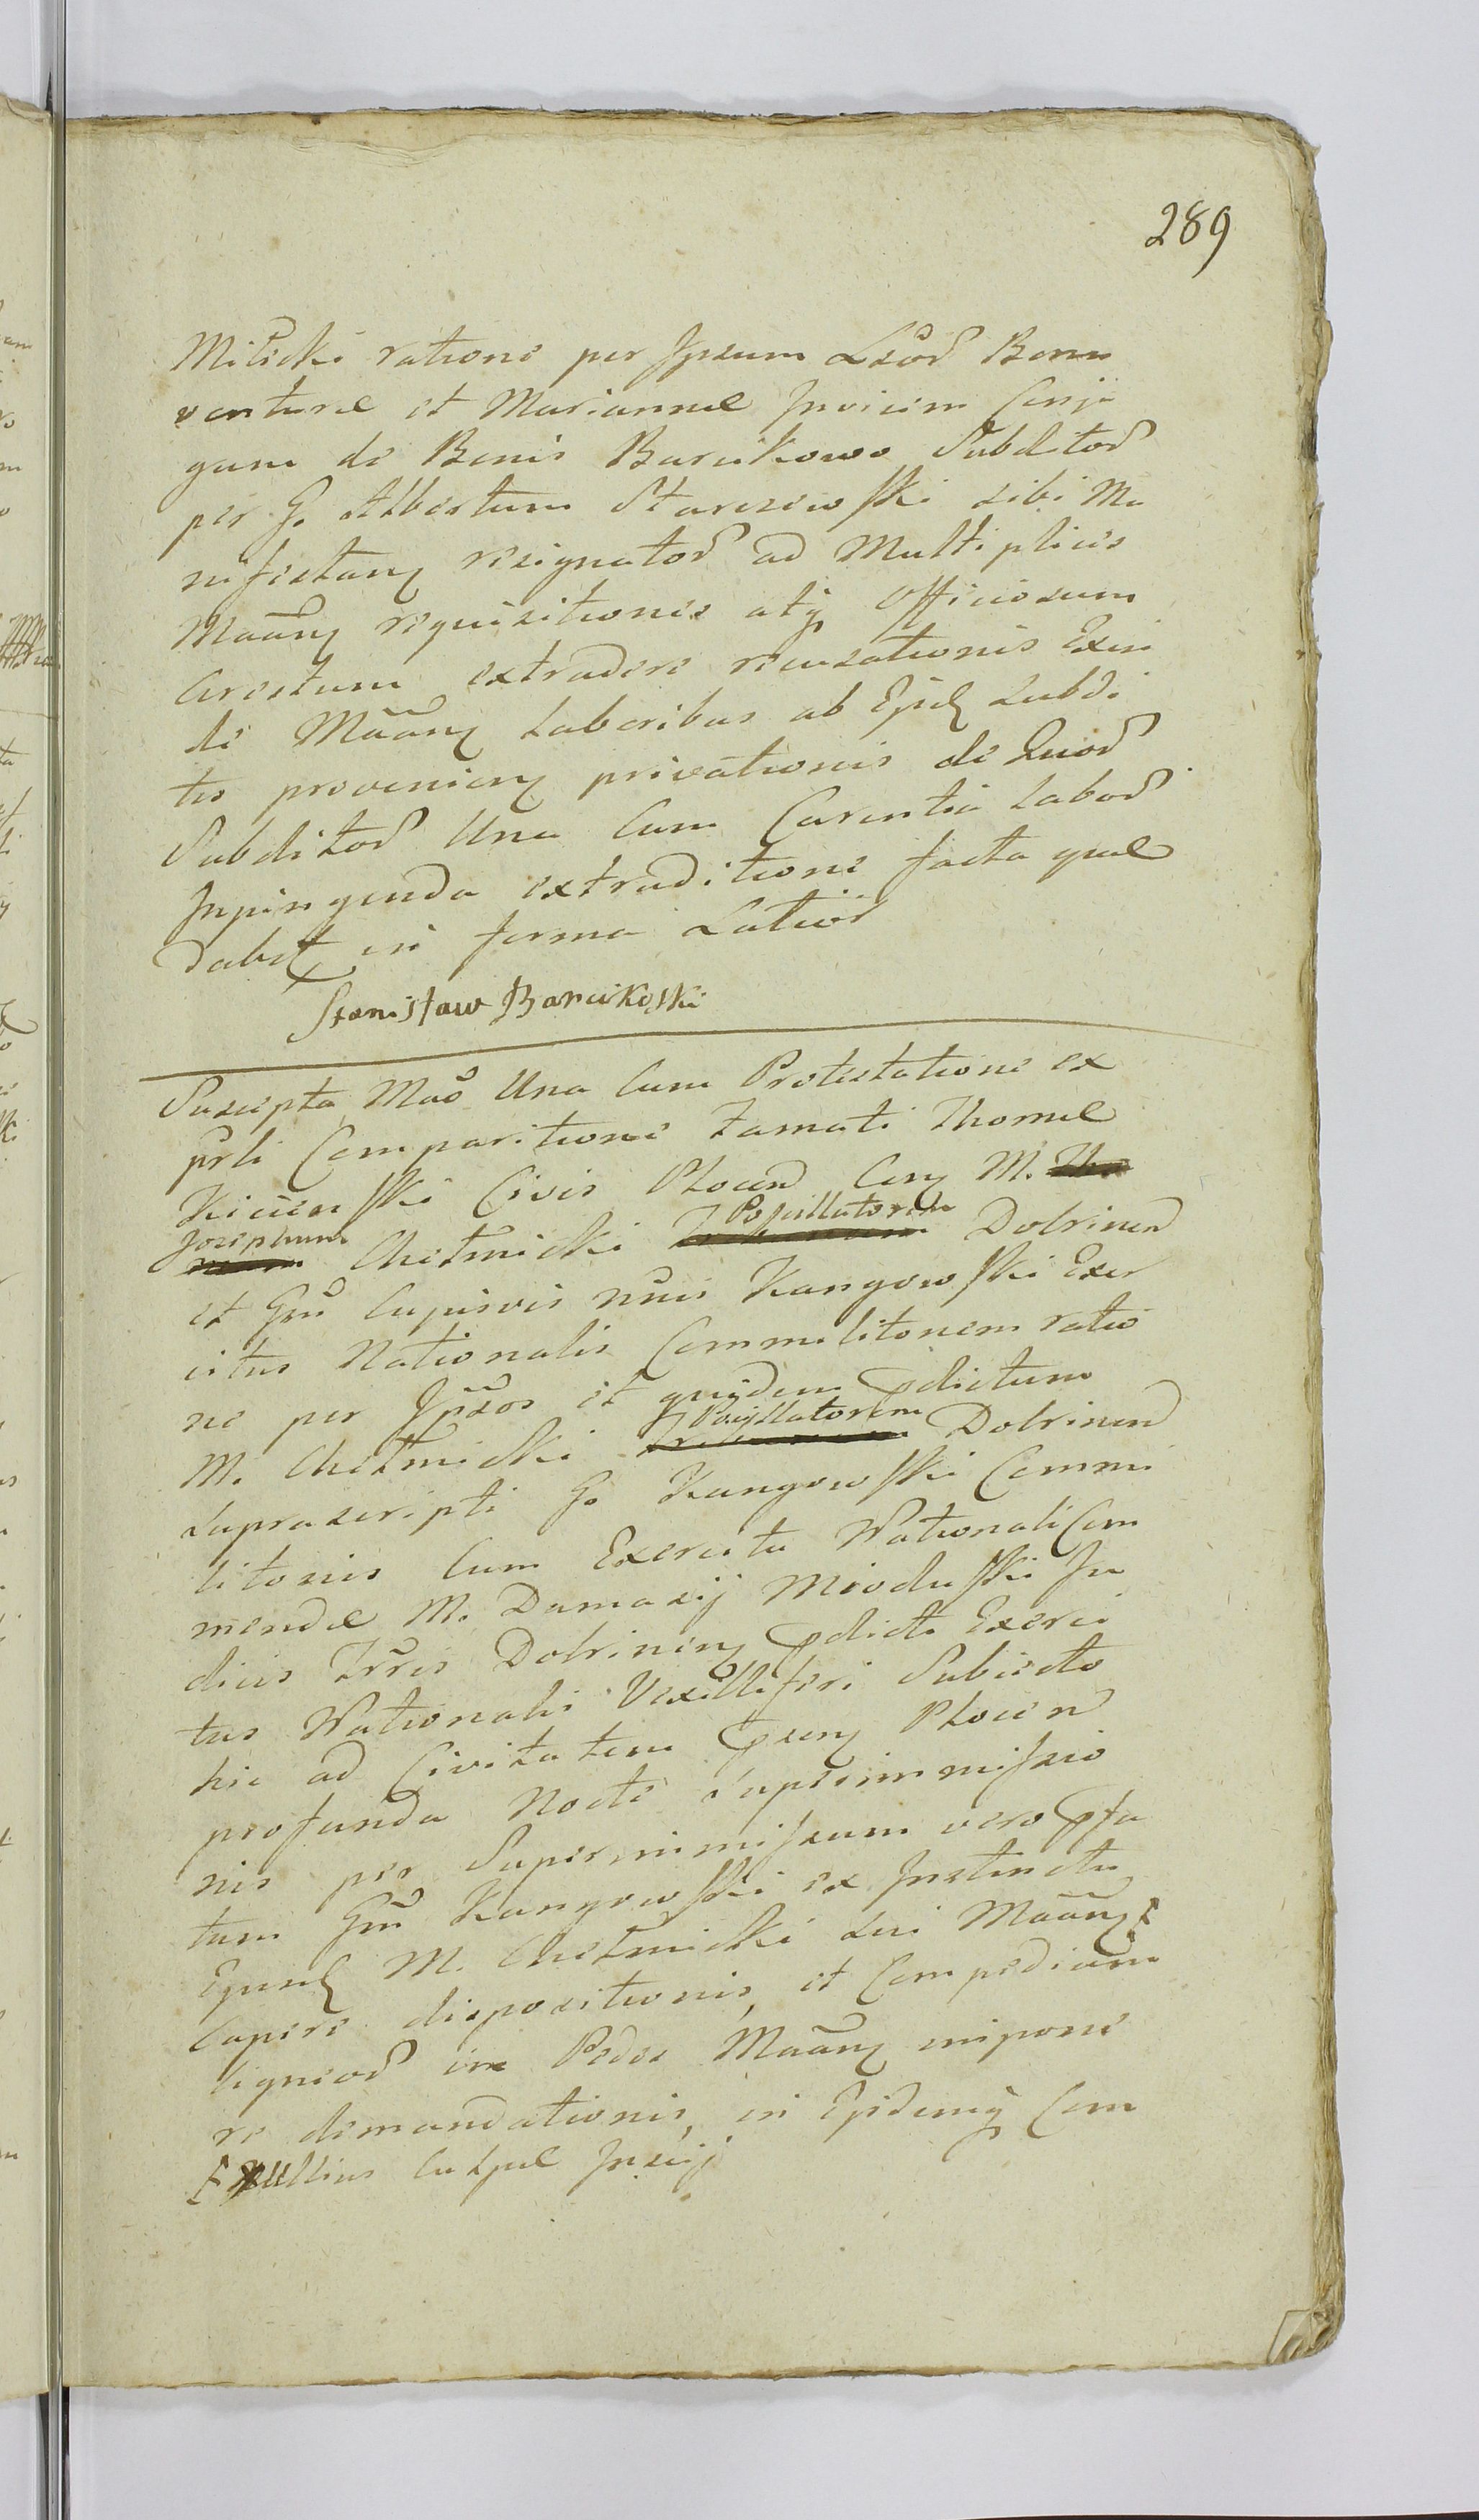 289
Milicki ratione per Ipsum Lror Bona
venturæ et Mariannæ Invicem Conju
gum de Bonis Barcikowo Subditor
per G. Albertum Starzewski sibi Ma
nifestanꝫ resignator ad Multiplices
Maanꝫ requisitiones atqꝫ Officiosum
Arestum extradere recusationis Exin
de Maanꝫ Laboribus ab Ejusd Subdi
tis provenienꝫ privationis de Quor
Subditor Una Cum Carentia Labor
Inpingenda extraditione facta quæ
dabit in forma Latior
Stanisław Barcikoski
Suscepta Mao Una Cum Protestatione ex
prli Comparitione Famati Thomæ
Kicienski Civis Plocen Conꝫ M.
Josephum Chełmicki Pocillatorem Dobrinen
et Gnu Cupisvis nnis Kangowski Exer
citus Nationalis Commilitonem ratio
ne per Ipsos et quidem pdictum
M. Chełmicki Pocillatorem Dobrinen
suprascripti G. Kangowski Commi
litonis Cum Exercitu Nationali Com
mendæ M. Damasij Mioduski Ju
dicis Trris Dobrinenꝫ pdicti Exerci
tus Nationalis Vexilliferi Subiecto
hic ad Civitatem psenꝫ Plocen
profunda Nocte Superimmissio
nis per Superimmissum vero pfa
tum Gnu Kangowski ex Instinctu
Ejusd M. Chełmicki sui Maanꝫ
Capere dispositionis, et Compedium
ligneor in Pedes Maanꝫ impone
re demandationis, in Ejsdemqꝫ Com
Nullius Culpæ Inscij